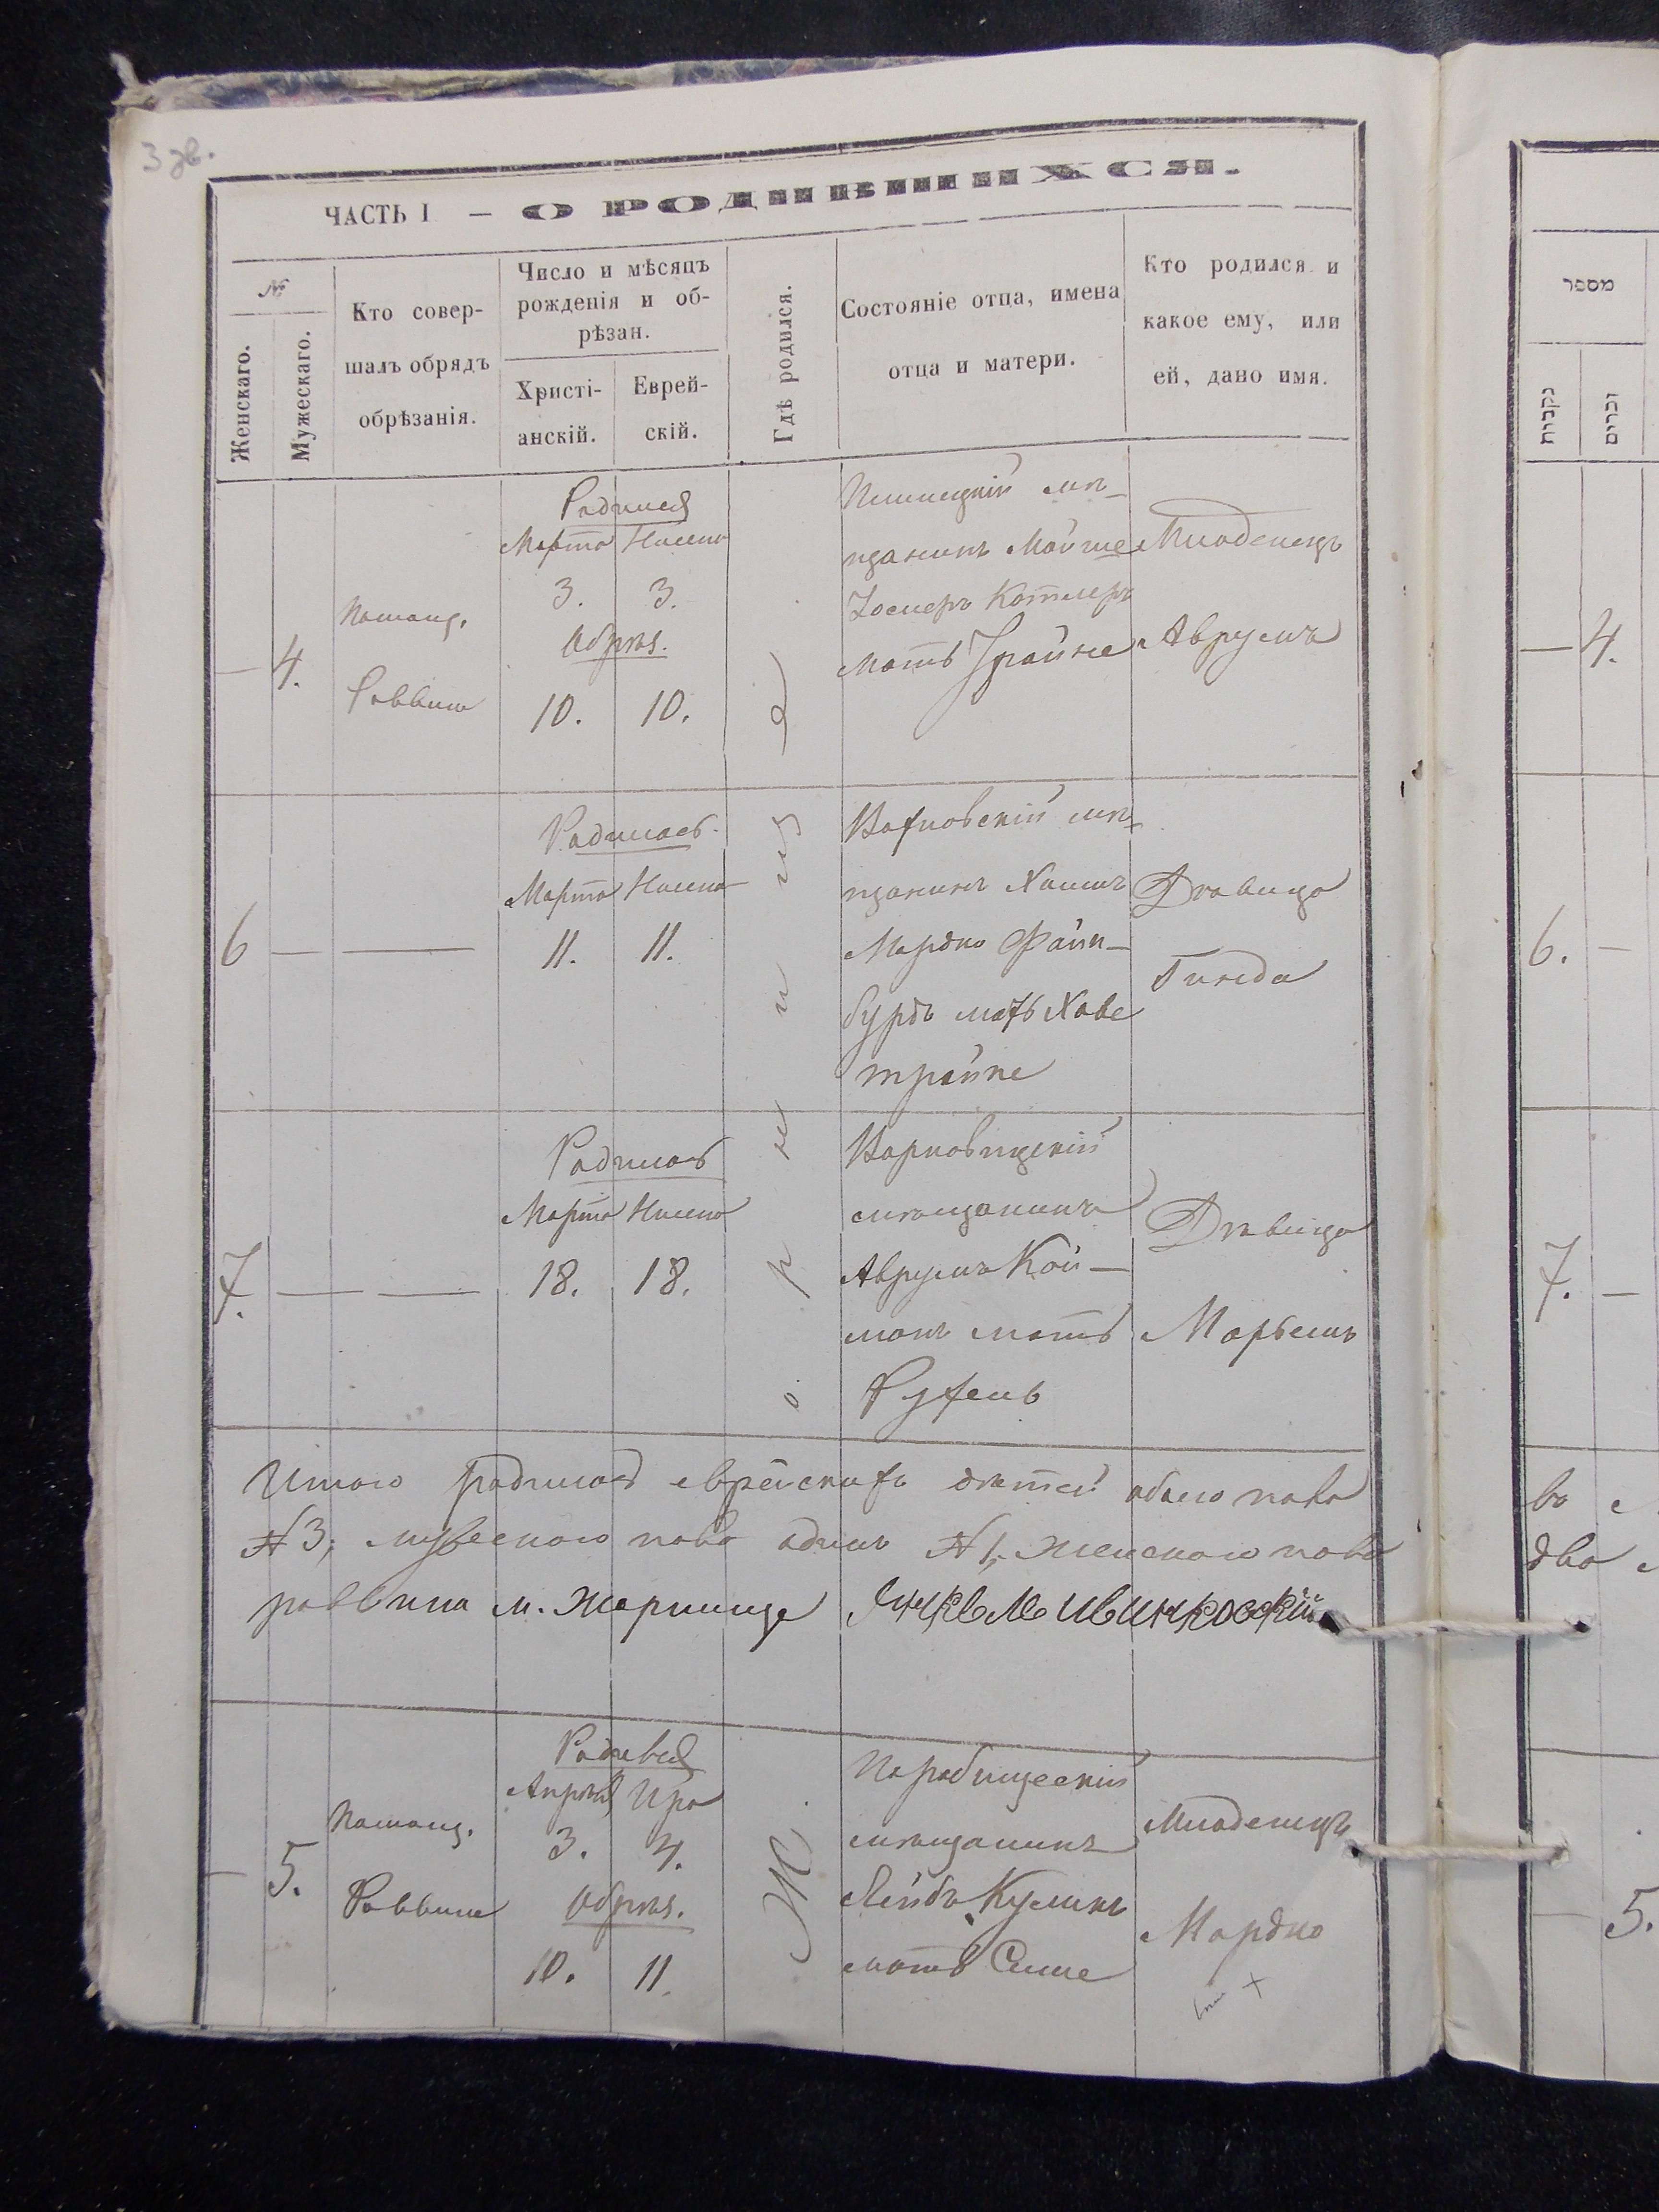 3 зв.
ЧАСТЬ I — О РОДИВШИХСЯ.
№
Женскаго.
Мужескаго.
Кто совер-
шалъ обрядъ
обрѣзанія.
Число и мѣсяцъ
рожденія и об-
рѣзан.
Христі-
анскій.
Еврей-
скій.
Гдѣ родился.
Состояніе отца, имена
отца и матери.
Кто родился и
какое ему, или
ей, дано имя.
— 4.
Помощ.
Раввина
Родился
Марта Нисена
3. 3.
Обрѣз.
10. 10.
мѣ-
щанинъ Мойше
Котляръ
мать
Младенецъ
Аврумъ
6 — —
Родилась
Марта Нисена
11. 11.
мѣ-
щанинъ Хаимъ
Мардко Файн-
бурдъ мать Хаве
трайне
Дѣвица
Гинда
7. — —
Родилась
Марта Нисена
18. 18.
мѣщанинъ
Аврумъ Кой-
манъ мать
Рухель
Дѣвица
Марьемъ
Итого родилось еврейскихъ дѣтей обоего пола
№ 3; мужескаго пола одинъ № 1, женскаго пола
раввина м. Жорнище
— 5.
Помощ.
Раввина
Родився
Апрѣля Ира
3. 4.
Обрѣз.
10. 11.
мѣщанинъ
Лейбъ Куликъ
мать Симе
Младенецъ
Мардко
Жорнище
מספר
נקבות
זכרים
— 4.
6. —
7. —
два
— 5.